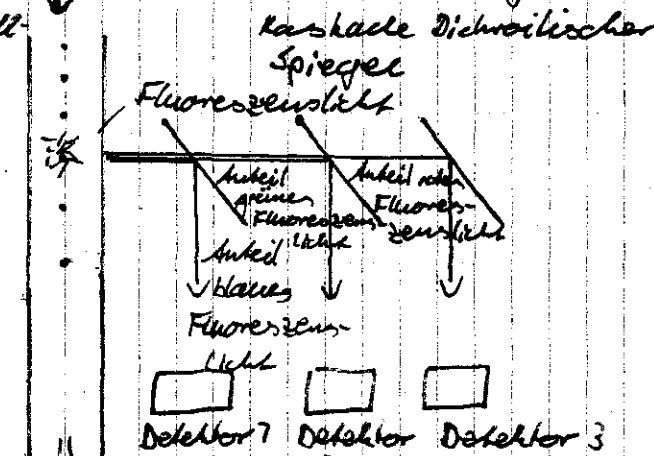 Kaskade Dichroitischer
Spiegel
Fluoreszenslicht
Anteil
grünes
Fluoreszens
Licht
Anteil roten
Fluores-
zenslicht
Anteil
blaues
Fluoreszens-
Licht
Detektor 1 Detektor Detektor 3